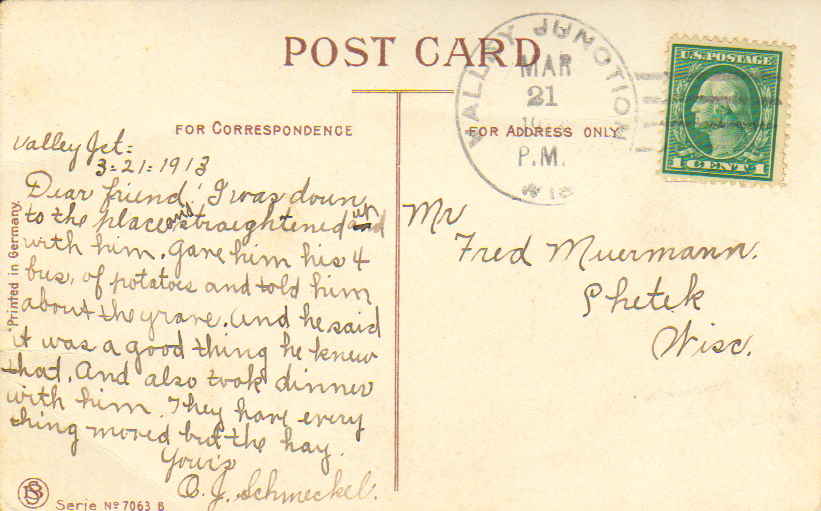 POST CARD
VALLEY JUNCTION
MAR
21
P.M.
WIS
U.S. POSTAGE
1 CENT 1
FOR CORRESPONDENCE
FOR ADDRESS ONLY
Valley Jct:
3-21-1913
Dear friend, I was down
to the place and straightened up
with him. Gave him his 4
bus. of potatoes and told him
about the grave. And he said
it was a good thing he knew
that. And also took dinner
with him. They have every
thing moved but the hay.
Yours
O. J. Schmeckel.
Mr
Fred Muermann.
Shetek
Wisc.
Printed in Germany.
Serie No 7063 B